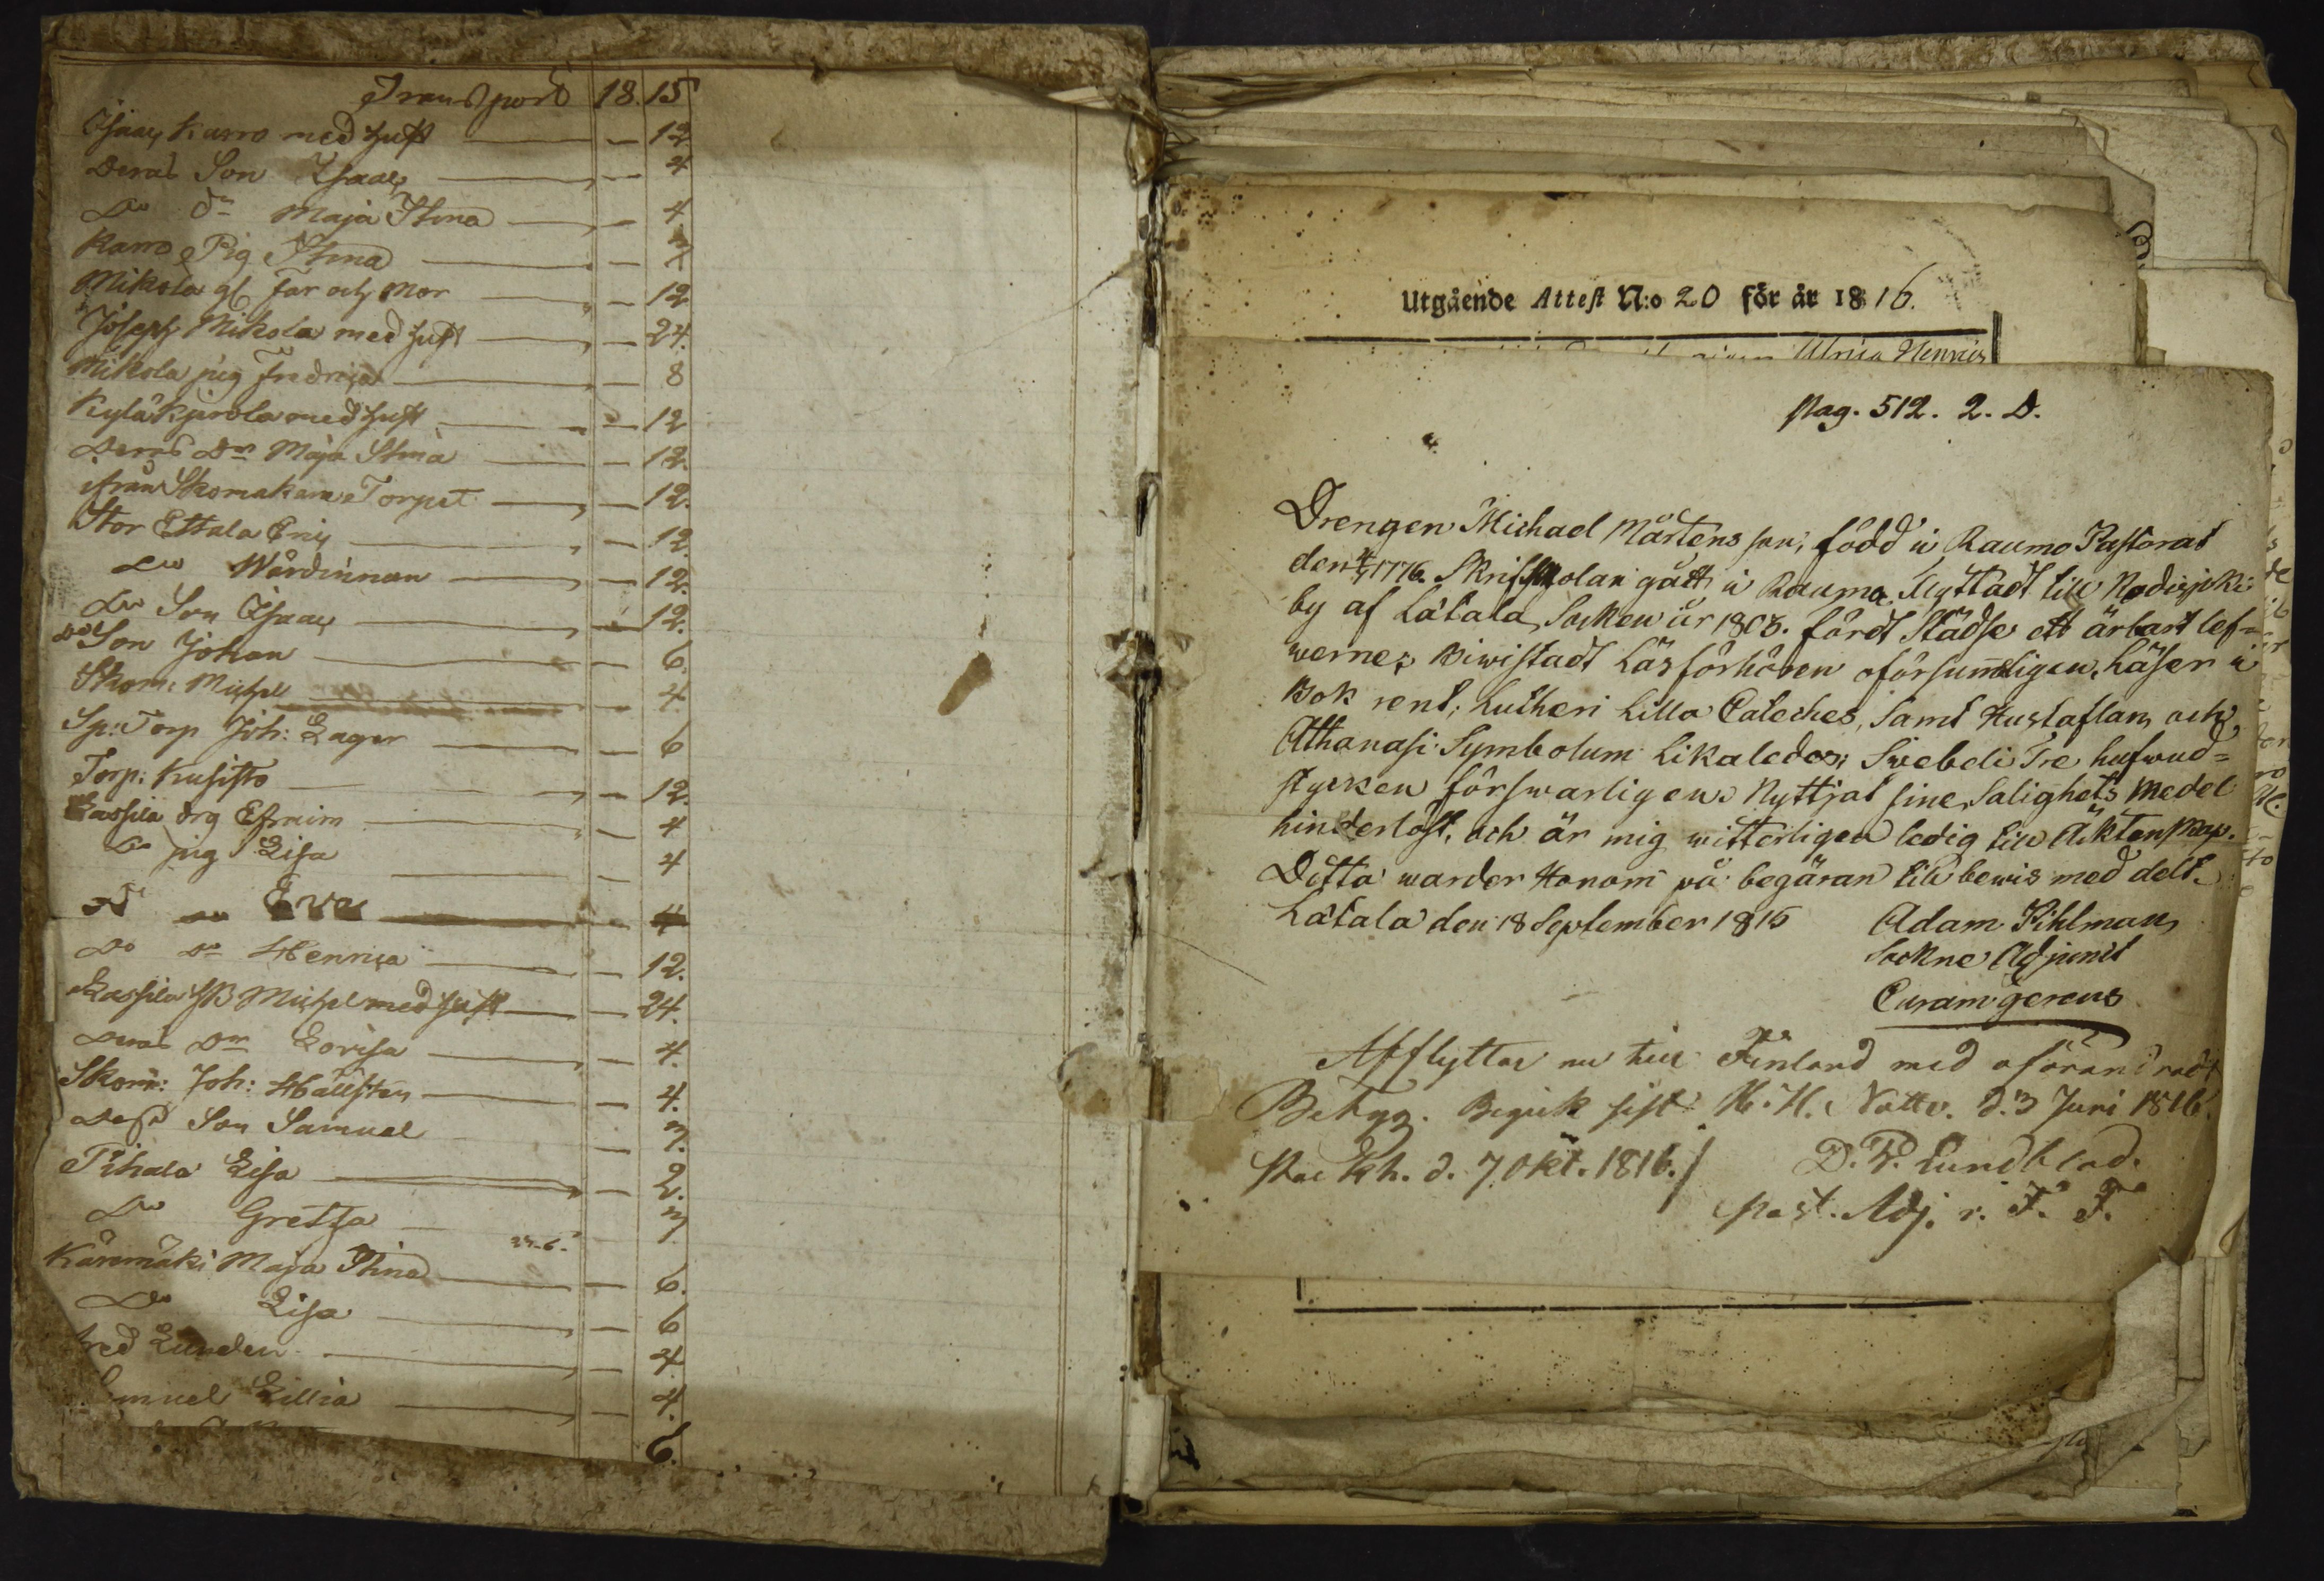 Transport 18. 15
Isaac Karro med hust — 12
Deras Son Isaac — 4
Do Dr Maja Stina — 4
Karro Pig Stina —
Mikola gl. Far och Mor — 12
Joseph Mikola med hust — 24.
Mikola pig Fredrica — 8
Kyläkjrola med hust — 12
Deras Dr Maja Stina — 12.
ifrån Skomakare Torpet — 12.
Stor Ettala Eric — 12.
Do Wärdinnan — 12.
Do Son Isaac — 12.
Do Son Johan — 6
Skom: Michel — 4
Sp: Torp Joh: Lager — 6
Torp: Kusisto — 12.
Lassila drg Efraim — 4
Do pig Lisa — 4
Do Do Eva — 4
Do Do Henrica — 12.
Lassila Michel med hust — 24.
Deras Dr Lovisa — 4.
Skom: Joh: Hällsten — 4.
Dess Son Samuel
Pihala Lisa — 2.
Do Gretha
Käremäki Maja Stina — 6.
Do Lisa — 6
Lunden — 4.
muel Lillia — 4.
6.
Utgående Attest N:o 20 för år 1816.
Ulrica Henrics
Pag. 512. 2. D.
Drengen Michael Mårtensson, född i Raumo Pastorat
den 1776. Skriftskolan gått i Raumo. Flyttadt till Kodisjoki
by af Lätala Socken år 1808. fördt städse ett ärbart lef-
werne; Biwistadt Läsförhören oförsummeligen, Läser i
Bok rent; Lutheri Lilla Cateches, samt Hustaflan och
Athanasi Symbolum Likaledes; Swebeli Tre hufwud-
stycken förswarligen. Nyttjat sine Salighets Medel
hinderlöst, och är mig witterligen ledig till Äktenskap.
Detta warder Honom på begäran till bewis meddelt.
Lätala den 18 September 1815 Adam Kihlman
Sockne Adjunct
Curam gerens
Afflyttar nu till Finland med oförändradt
Betyg. Begick sist H. H. Nattv. d. 3 Juni 1816.
Sta Kh. d. 7 Okt. 1816. D. P. Lundblad.
Past. Adj. v. F. F.